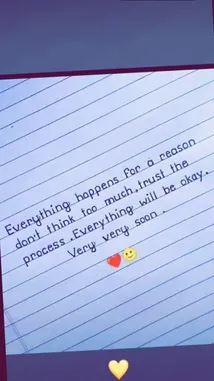 Everything happens for a reason
don't think too much,trust the
process.Everything will be okay.
Very very soon.